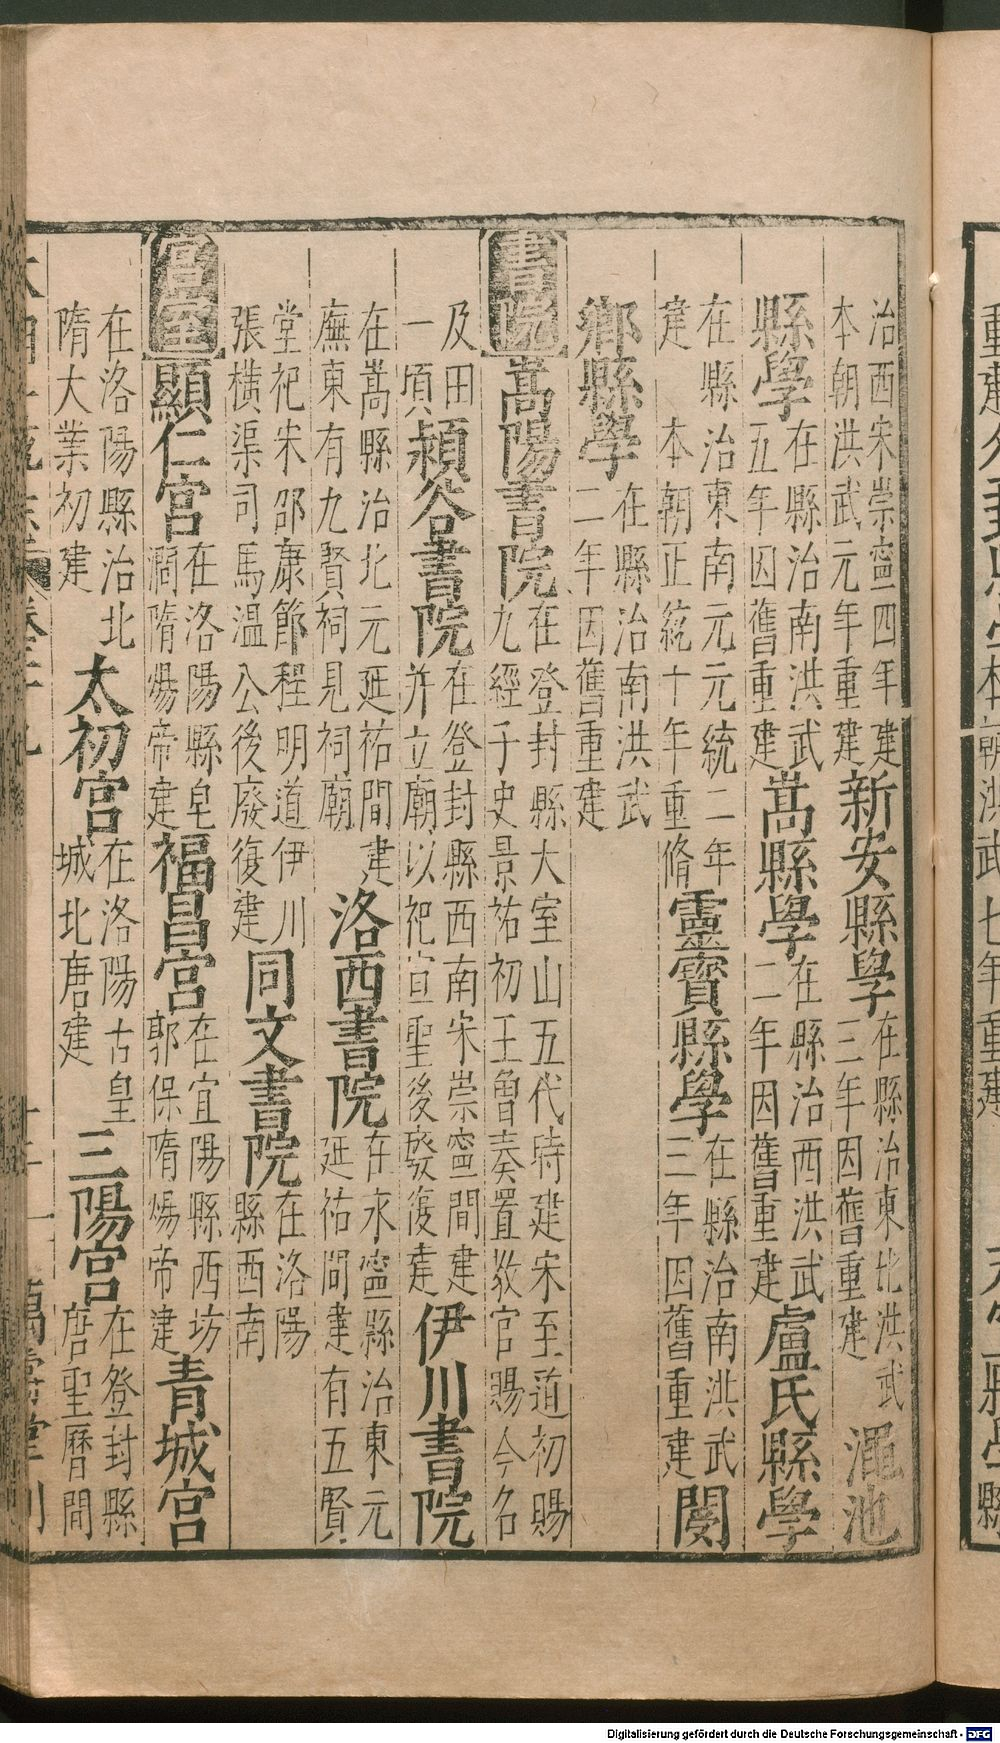 治西宋崇寧四年建
本朝洪武元年重建新安縣學在縣治東北洪武三年因舊重建澠池
縣學在縣治南洪武五年因舊重建嵩縣學在縣治西洪武二年因舊重建盧氏縣學
在縣治東南元元統二年建
本朝正統十年重脩靈寶縣學在縣治南洪武三年因舊重建閿
鄉縣學在縣治南洪武二年因舊重建
書院嵩陽書院在登封縣大室山五代時建宋至道初賜九經子史景祐初王曾奏置敎官賜今名
及田一頃潁谷書院在登封縣西南宋崇寧間建并立廟以祀宣聖後廢復建伊川書院
在嵩縣治北元延祐間建廡東有九賢祠見祠廟洛西書院在永寧縣治東元延祐間建有五賢
堂祀宋邵康節程明道伊川張橫渠司馬溫公後廢復建同文書院在洛陽縣西南
宮室顯仁宮在洛陽縣皂澗隋煬帝建福昌宮在宜陽縣西坊郭保隋煬帝建青城宮
在洛陽縣治北隋大業初建太初宮在洛陽古皇城北唐建三陽宮在登封縣唐聖曆間
重建
朝洪武七年重建
縣學縣
Digitalisierung gefördert durch die Deutsche Forschungsgemeinschaft - DFG